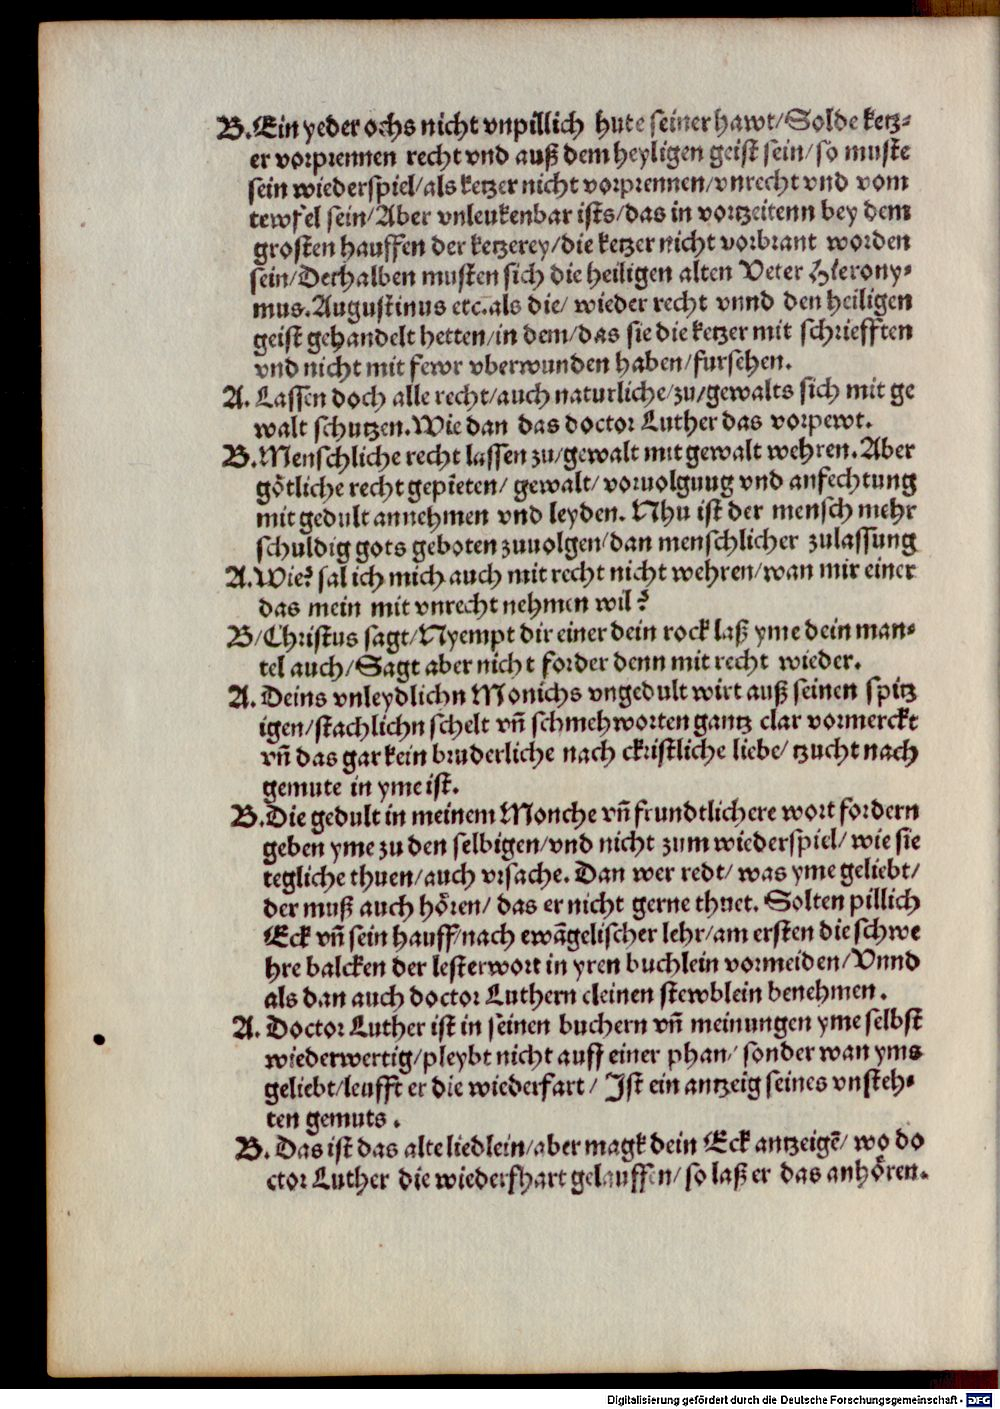 B. Ein yeder ochs nicht vnpillich hute seiner hawt/ Solde ketz-
er vorprennen recht vnd auß dem heyligen geist sein/ so muste
sein wiederspiel/ als ketzer nicht vorprennen/ vnrecht vnd vom
tewfel sein/ Aber vnleukenbar ists/ das in vortzeitenn bey dem
grosten hauffen der ketzerey/ die ketzer nicht vorbrant worden
sein/ Derhalben musten sich die heiligen alten Veter Hierony-
mus. Augustinus etc. als die/ wieder recht vnnd den heiligen
geist gehandelt hetten/ in dem/ das sie die ketzer mit schriefften
vnd nicht mit fewr vberwunden haben/ fursehen.
A. Lassen doch alle recht/ auch naturliche/ zu/ gewalts sich mit ge
walt schutzen. Wie dan das doctor Luther das vorpewt.
B. Menschliche recht lassen zu/ gewalt mit gewalt wehren. Aber
gótliche recht gepieten/ gewalt/ voruolgung vnd anfechtung
mit gedult annehmen vnd leyden. Nhu ist der mensch mehr
schuldig gots geboten zuuolgen/ dan menschlicher zulassung
A. Wie? sal ich mich auch mit recht nicht wehren/ wan mir einer
das mein mit vnrecht nehmen wil?
B/ Christus sagt/ Nyempt dir einer dein rock laß yme dein man-
tel auch/ Sagt aber nicht forder denn mit recht wieder.
A. Deins vnleydlichn Monichs vngedult wirt auß seinen spitz
igen/ stachlichn schelt vñ schmehworten gantz clar vormerckt
vñ das gar kein bruderliche nach ckristliche liebe/ tzucht nach
gemute in yme ist.
B. Die gedult in meinem Monche vñ frundtlichere wort fordern
geben yme zu den selbigen/ vnd nicht zum wiederspiel/ wie sie
tegliche thuen/ auch vrsache. Dan wer redt/ was yme geliebt/
der muß auch hóren/ das er nicht gerne thuet. Solten pillich
Eck vñ sein hauff/ nach ewãgelischer lehr/ am ersten die schwe
hre balcken der lesterwort in yren buchlein vormeiden/ Vnnd
als dan auch doctor Luthern cleinen stewblein benehmen.
A. Doctor Luther ist in seinen buchern vñ meinungen yme selbst
wiederwertig/ pleybt nicht auff einer phan/ sonder wan yms
geliebt/ leufft er die wiederfart/ Ist ein antzeig seines vnsteh-
ten gemuts.
B. Das ist das alte liedlein/ aber magk dein Eck antzeigẽ/ wo do
ctor Luther die wiederfhart gelauffen/ so laß er das anhóren.
Digitalisierung gefördert durch die Deutsche Forschungsgemeinschaft - DFG